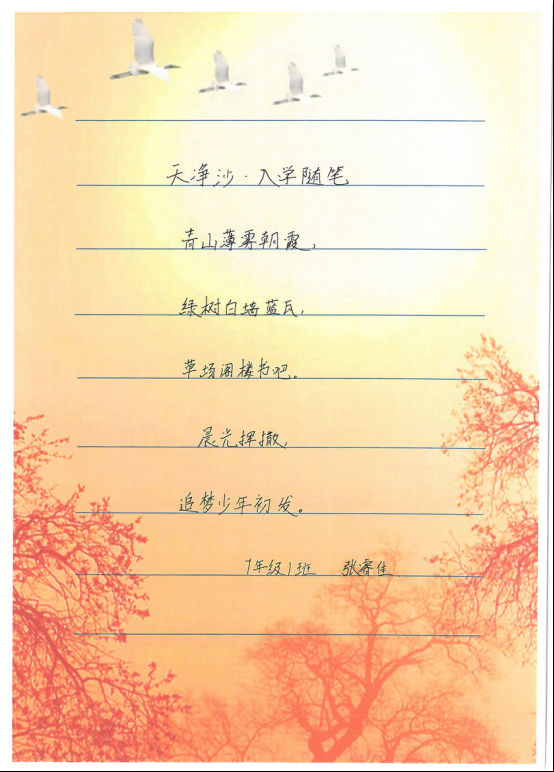 天净沙·入学随笔
青山薄雾朝霞,
绿树白墙蓝瓦,
草场阁楼书吧。
晨光挥撒,
追梦少年初发。
7年级1班 张睿佳